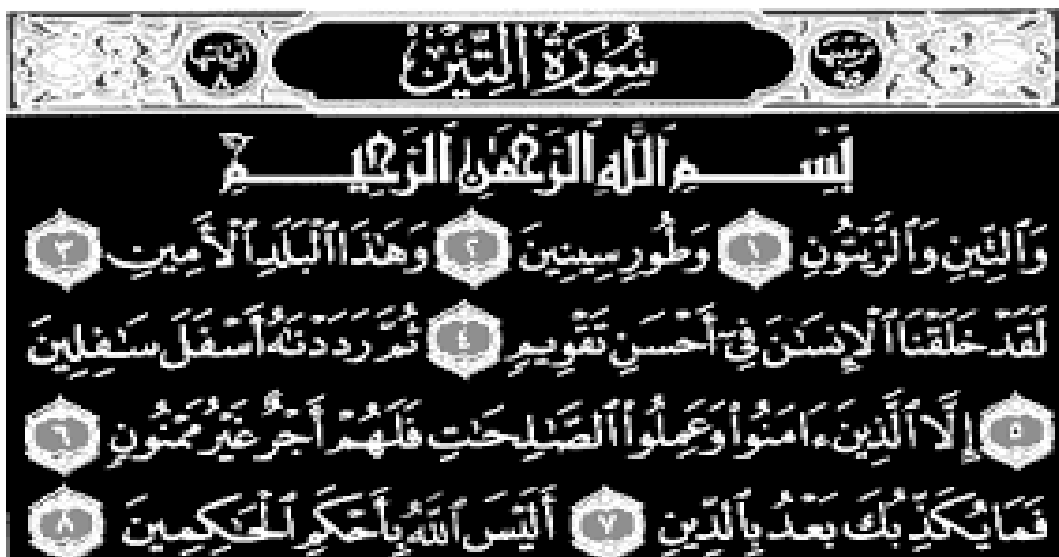 سُورَةُ ٱلتِّينِ
بِسْمِ ٱللَّهِ ٱلرَّحْمَٰنِ ٱلرَّحِيمِ
وَٱلتِّينِ وَٱلزَّيْتُونِ ١ وَطُورِ سِينِينَ ٢ وَهَٰذَا ٱلْبَلَدِ ٱلْأَمِينِ ٣
لَقَدْ خَلَقْنَا ٱلْإِنسَٰنَ فِىٓ أَحْسَنِ تَقْوِيمٍ ٤ ثُمَّ رَدَدْنَٰهُ أَسْفَلَ سَٰفِلِينَ
٥ إِلَّا ٱلَّذِينَ ءَامَنُوا۟ وَعَمِلُوا۟ ٱلصَّٰلِحَٰتِ فَلَهُمْ أَجْرٌ غَيْرُ مَمْنُونٍ ٦
فَمَا يُكَذِّبُكَ بَعْدُ بِٱلدِّينِ ٧ أَلَيْسَ ٱللَّهُ بِأَحْكَمِ ٱلْحَٰكِمِينَ ٨